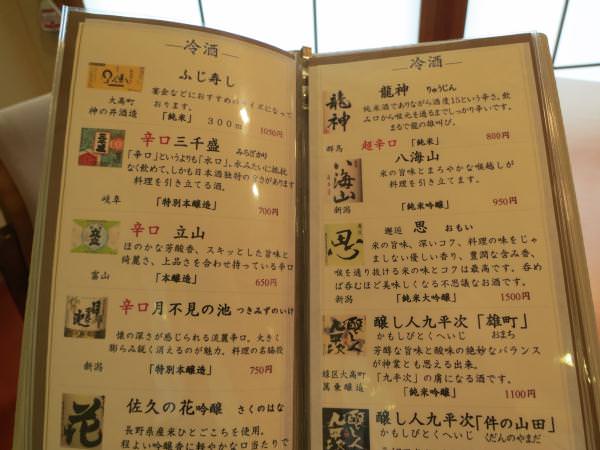 冷酒
ふじ寿し
宴会などにおすすめのサイズになって
おります。
大高町
神の井酒造
「純米」 300ml 1050円
辛口 三千盛 みちざかり
「辛口」というよりも「水口」。水みたいに抵抗
なく飲めて、しかも日本酒独特の旨さがあります
料理を引き立てる酒。
岐阜
「特別本醸造」
700円
辛口 立山
ほのかな芳酸香、スキッとした旨味と
綺麗さ、上品さを合わせ持っている辛口
富山
「本醸造」
650円
辛口 月不見の池 つきみずのいけ
懐の深さが感じられる淡麗辛口。大きく
膨らみ鋭く消えるのが魅力。料理の名脇役
新潟
「特別本醸造」 750円
佐久の花 吟醸 さくのはな
長野県産米ひとごこちを使用。
程よい吟醸香に軽やかな口当たりで
冷酒
龍神 りゅうじん
純米酒でありながら酒度15という辛さ。飲
み口から喉元を通るまでしっかり辛いです。
まるで龍の雄叫び。
群馬
超辛口 「純米」 800円
八海山
米の旨味とまろやかな喉越しが
料理を引き立てます。
新潟
「純米吟醸」 950円
邂逅 思 おもい
米の旨味、深いコク、料理の味をじゃ
ましない優しい香り、豊潤な含み香、
喉を通り抜ける米の味とコクは最高です。呑め
ば呑むほど美味しくなる不思議なお酒です。
新潟
「純米大吟醸」 1500円
醸し人九平次「雄町」
かもしびとくへいじ おまち
芳醇な旨味と酸味の絶妙なバランス
が神業とも思える出来。
「九平次」の虜になる酒です。
緑区大高町
萬乗醸造
「純米吟醸」 1100円
醸し人九平次「件の山田」
かもしびとくへいじ くだんのやまだ